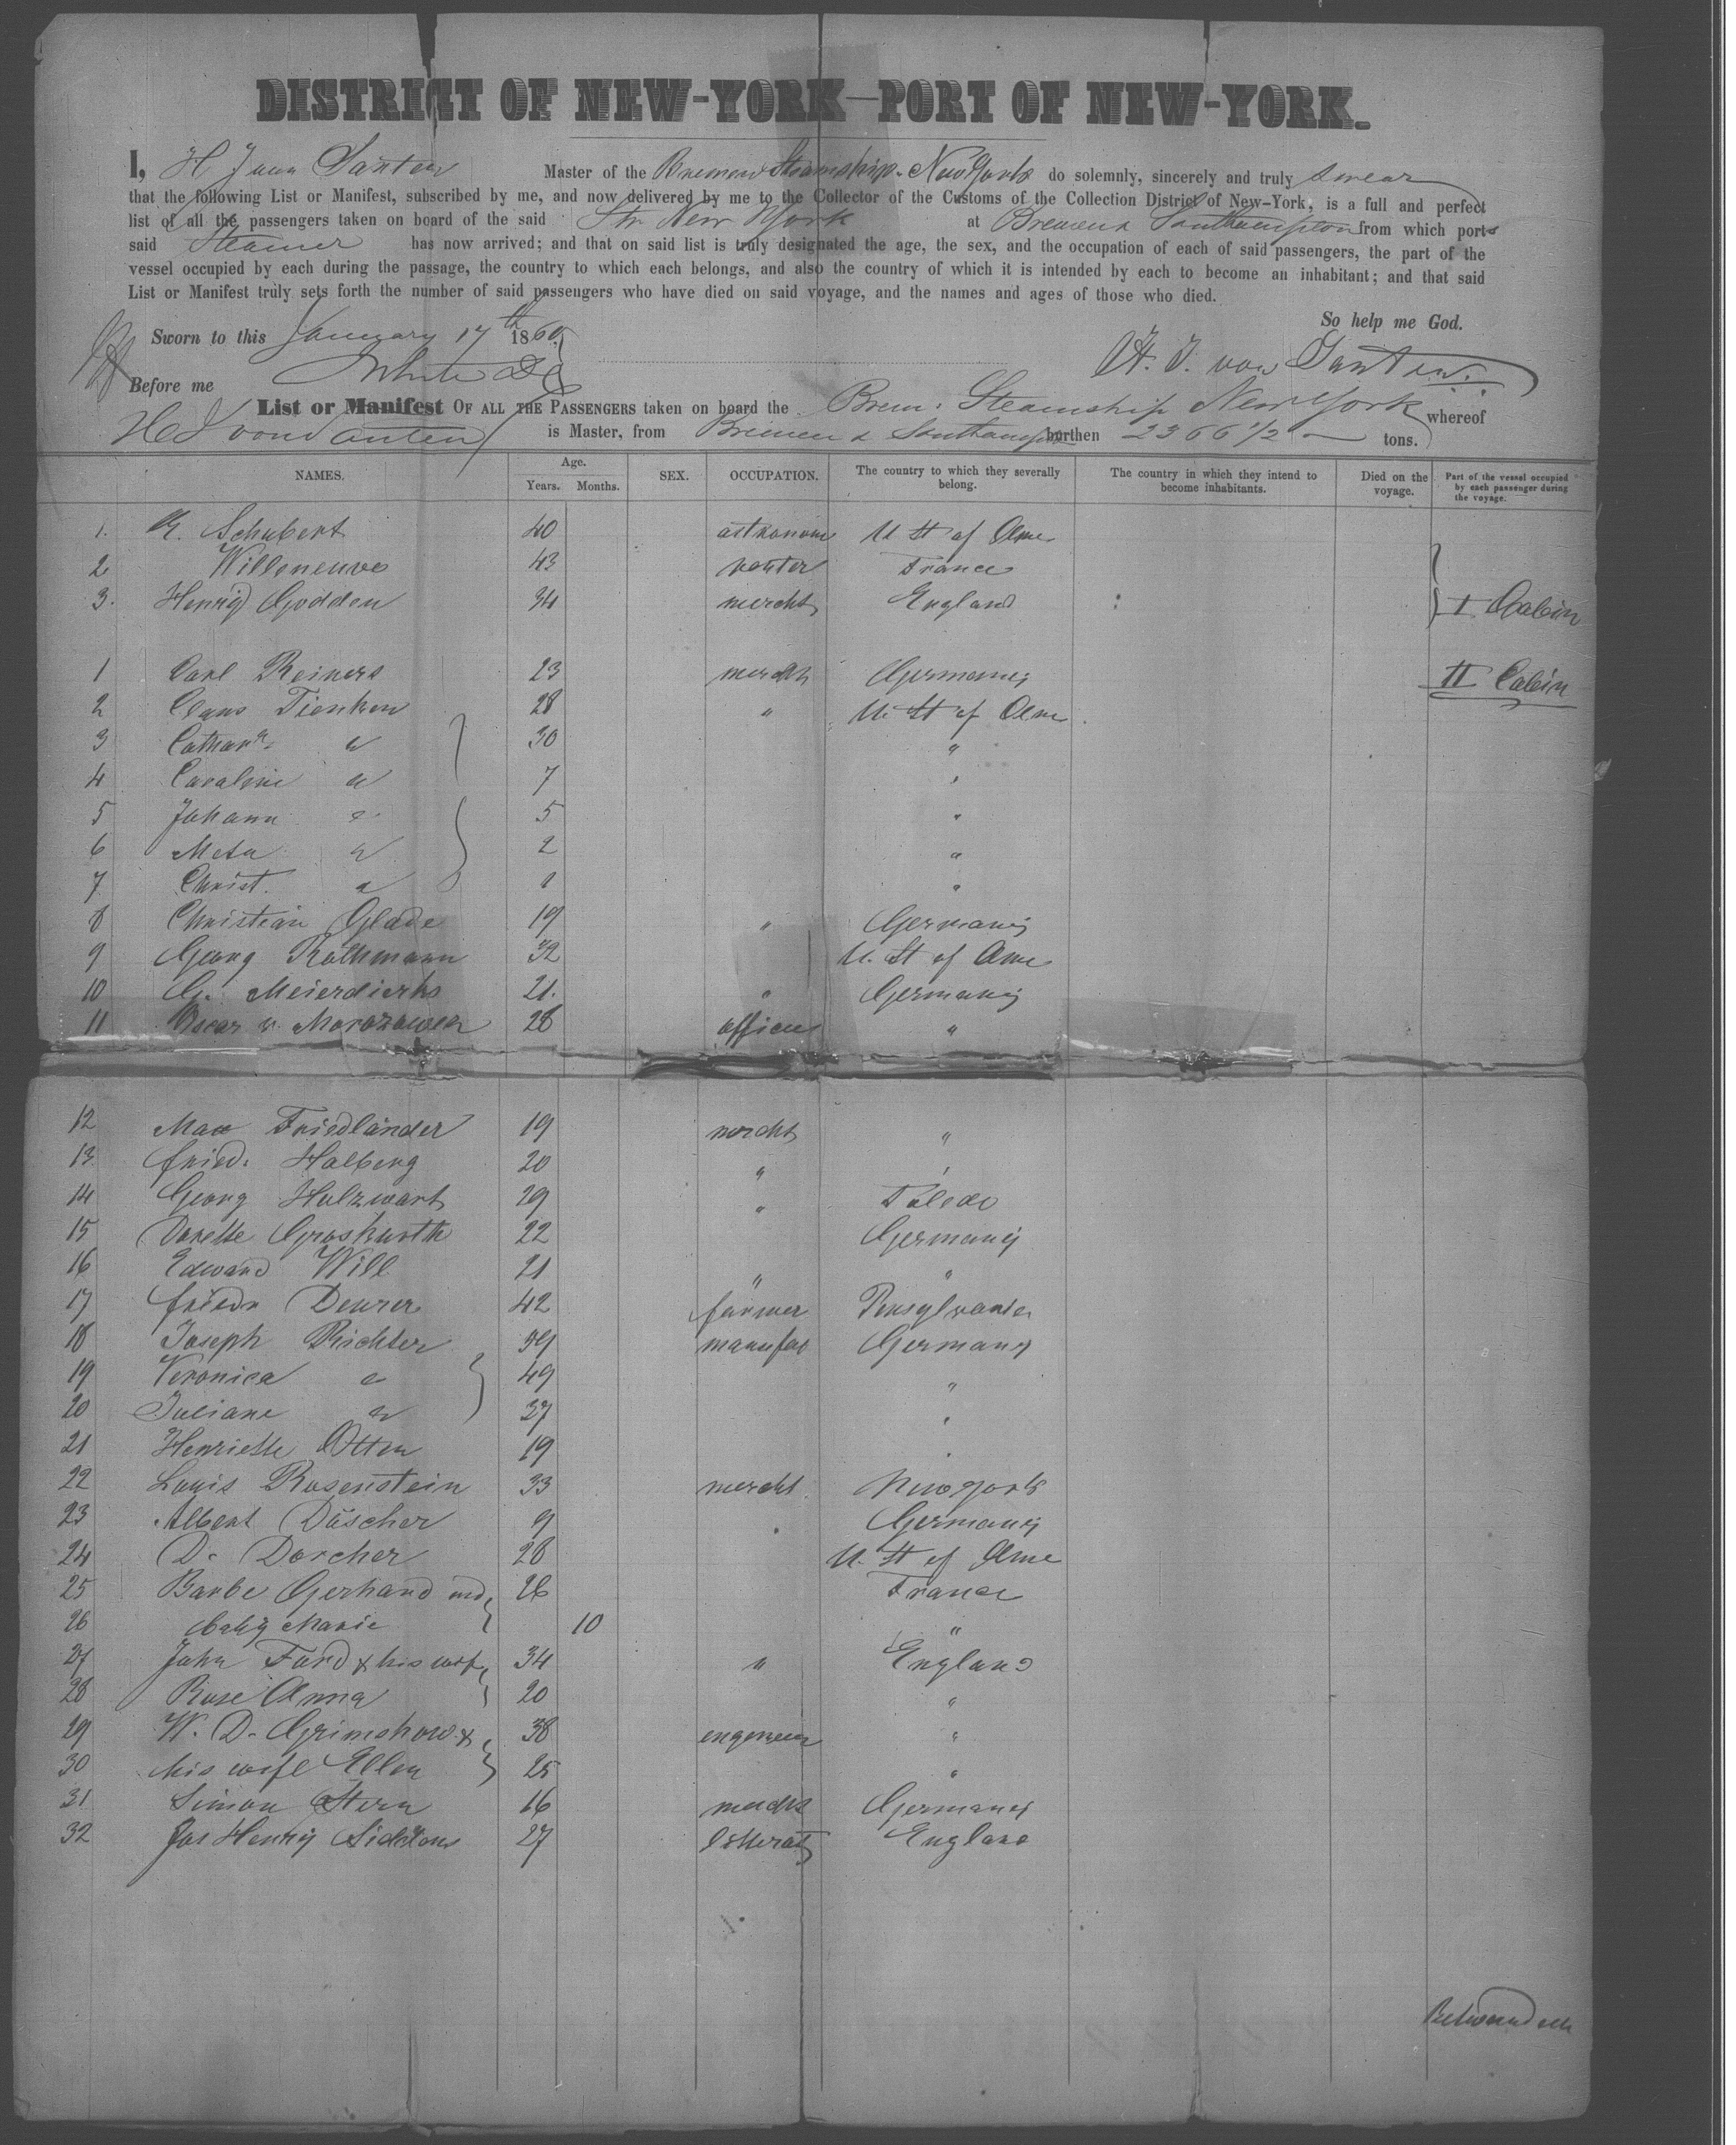 DISTRICT OF NEW-YORK—PORT OF NEW-YORK.
I, H J von Santen Master of the Bremen Steamship New York do solemnly, sincerely and truly swear
that the following List or Manifest, subscribed by me, and now delivered by me to the Collector of the Customs of the Collection District of New-York, is a full and perfect
list of all the passengers taken on board of the said Str New York at Bremen & Southampton from which ports
said Steamer has now arrived; and that on said list is truly designated the age, the sex, and the occupation of each of said passengers, the part of the
vessel occupied by each during the passage, the country to which each belongs, and also the country of which it is intended by each to become an inhabitant; and that said
List or Manifest truly sets forth the number of said passengers who have died on said voyage, and the names and ages of those who died.
So help me God.
Sworn to this January 17th 1860
H. J. von Santen.
Before me White
List or Manifest OF ALL THE PASSENGERS taken on board the Brem: Steamship New York whereof
H J von Santen is Master, from Bremen & Southampton burthen 2366 1/2 tons.
NAMES. Age. Years. Months. SEX. OCCUPATION. The country to which they severally belong. The country in which they intend to become inhabitants. Died on the voyage. Part of the vessel occupied by each passenger during the voyage.
1. Schubert 40 astronom U St of Ame
2 Willeneuve 43 France
3. Henry Godden 34 mercht England I Cabin
1 Carl Reiners 23 mercht Germany II Cabin
2 Claus Tienken 28 " U. St of Ame
3 Cathar " 30 "
4 Caroline " 7 "
5 Johann " 5 "
6 Meta " 2 "
7 Christ. " 1 "
8 Christian Glade 19 " Germany
9 Georg Rathmann 32 U. St of Ame
10 G. Meierdierks 21. " Germany
11 Oscar v. Morozowicz 28 officer "
12 Max Friedländer 19 mercht "
13 Fried. Halberg 20 " "
14 Georg Holzwart 29 " Toledo
15 Dorette Groskurth 22 Germany
16 Edward Will 21 " "
17 Friedr Deurer 42 farmer Pensylvania
18 Joseph Richter 59 manufac Germany
19 Veronica " 49 "
20 Juliane " 27 "
21 Henriette Otten 19 "
22 Louis Rosenstein 33 mercht New York
23 Albert Däscher 9 " Germany
24 D. Dorcher 28 U. St of Ame
25 Barbe Gerhard and 26 France
26 baby Marie 10 "
27 John Ford & his wife 34 " England
28 Rose Anna 20 "
29 W. D. Grimshow & 38 engeneer "
30 his wife Ellen 25 "
31 Simon Stern 16 mercht Germany
32 Jas Henry Siddons 27 litterat England